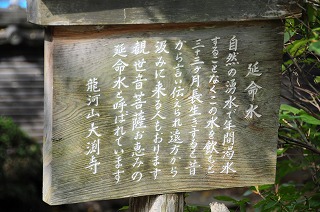 延命水
自然の湧水で年間渇水
することなくこの水を飲むと
三年三ヵ月長生きすると昔
から言い伝えられ遠方から
汲みに来る人もおります
観世音菩薩お恵みの
延命水と呼ばれています
龍河山 大渕寺